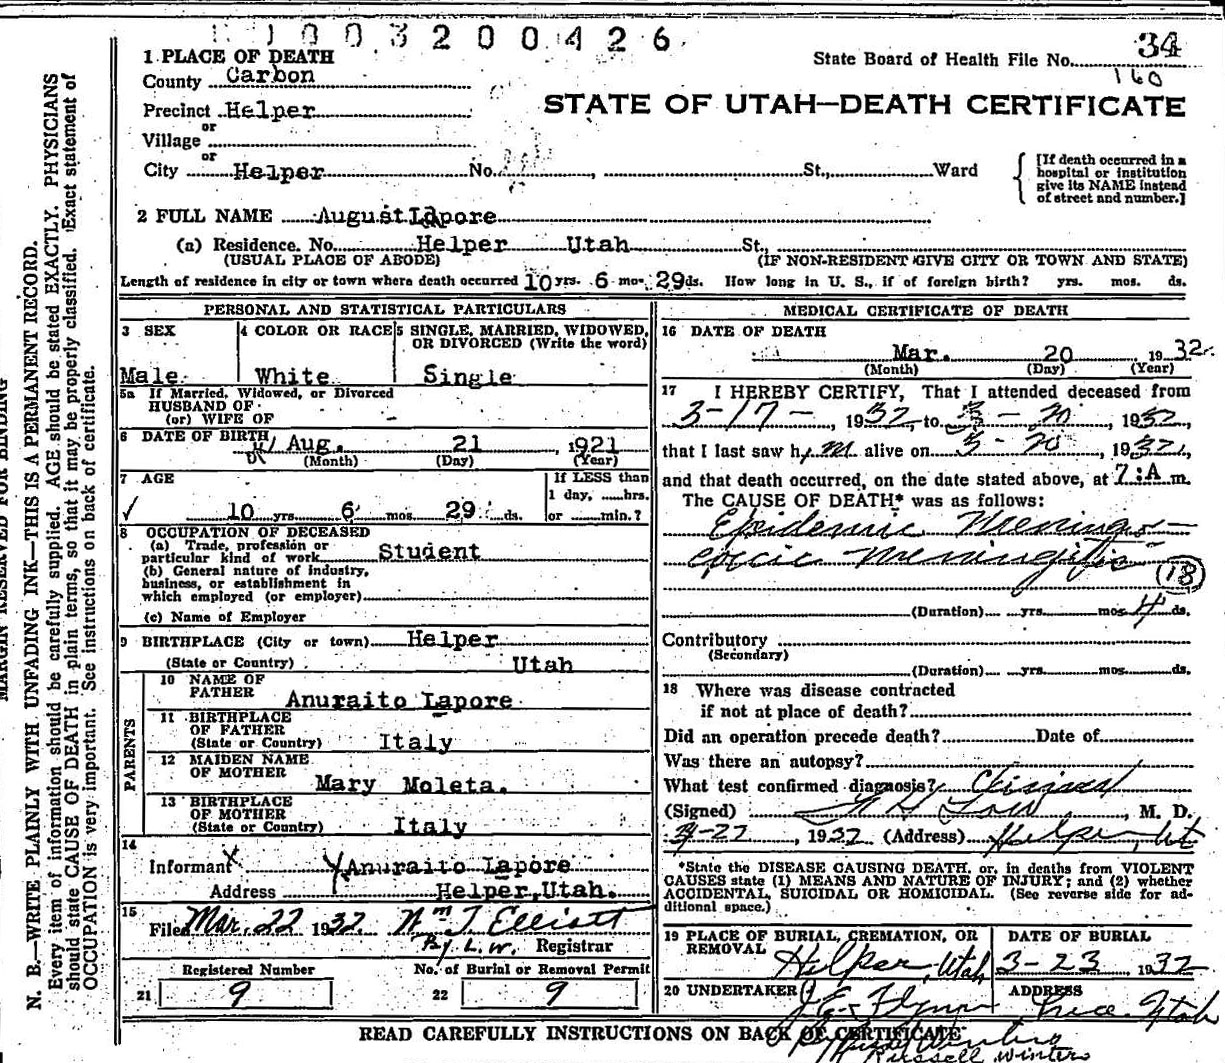 1003200426
1 PLACE OF DEATH
State Board of Health File No. 34
160
County Carbon
STATE OF UTAH—DEATH CERTIFICATE
Precinct Helper
or
Village
or
City Helper No. , St., Ward
[If death occurred in a
hospital or institution
give its NAME instead
of street and number.]
2 FULL NAME August Lapore
(a) Residence. No. Helper Utah St.,
(USUAL PLACE OF ABODE) (IF NON-RESIDENT GIVE CITY OR TOWN AND STATE)
Length of residence in city or town where death occurred 10 yrs. 6 mos. 29 ds. How long in U. S., if of foreign birth? yrs. mos. ds.
PERSONAL AND STATISTICAL PARTICULARS
3 SEX 4 COLOR OR RACE 5 SINGLE, MARRIED, WIDOWED,
OR DIVORCED (Write the word)
Male White Single
5a If Married, Widowed, or Divorced
HUSBAND OF
(or) WIFE OF -
6 DATE OF BIRTH Aug. 21 , 1921
(Month) (Day) (Year)
7 AGE If LESS than
1 day, hrs.
✓ 10 yrs 6 mos 29 ds. or min.?
8 OCCUPATION OF DECEASED
(a) Trade, profession or
particular kind of work Student
(b) General nature of industry,
business, or establishment in
which employed (or employer)
(c) Name of Employer
9 BIRTHPLACE (City or town) Helper
(State or Country) Utah
PARENTS
10 NAME OF
FATHER Anuraito Lapore
11 BIRTHPLACE
OF FATHER
(State or Country) Italy
12 MAIDEN NAME
OF MOTHER Mary Moleta.
13 BIRTHPLACE
OF MOTHER
(State or Country) Italy
14
Informant Anuraito Lapore
Address Helper,Utah.
15
Filed Mar. 22 1932. Wm J. Elliott
By L. W. Registrar
Registered Number No. of Burial or Removal Permit
21 9 22 9
MEDICAL CERTIFICATE OF DEATH
16 DATE OF DEATH
Mar. 20 , 1932.
(Month) (Day) (Year)
17 I HEREBY CERTIFY, That I attended deceased from
3-17-, 1932, to 3-20, 1932,
that I last saw him alive on 3-20, 1932,
and that death occurred, on the date stated above, at 7:A m.
The CAUSE OF DEATH* was as follows:
Epidemic Meningo-
coccic Meningitis
18
(Duration) yrs. mos 4 ds.
Contributory
(Secondary)
(Duration) yrs. mos. ds.
18 Where was disease contracted
if not at place of death?
Did an operation precede death? Date of
Was there an autopsy?
What test confirmed diagnosis? Clinical
(Signed) Low, M. D.
3-22, 1932 (Address) Helper, Ut
*State the DISEASE CAUSING DEATH, or, in deaths from VIOLENT
CAUSES state (1) MEANS AND NATURE OF INJURY; and (2) whether
ACCIDENTAL, SUICIDAL OR HOMICIDAL. (See reverse side for ad-
ditional space.)
19 PLACE OF BURIAL, CREMATION, OR
REMOVAL DATE OF BURIAL
Helper, Utah 3-23 1932
20 UNDERTAKER ADDRESS
J. E. Flynn Price, Utah
READ CAREFULLY INSTRUCTIONS ON BACK OF CERTIFICATE
Russell Winters
MARGIN RESERVED FOR BINDING
N. B.—WRITE PLAINLY WITH UNFADING INK—THIS IS A PERMANENT RECORD.
Every item of information should be carefully supplied. AGE should be stated EXACTLY. PHYSICIANS
should state CAUSE OF DEATH in plain terms, so that it may be properly classified. Exact statement of
OCCUPATION is very important. See instructions on back of certificate.